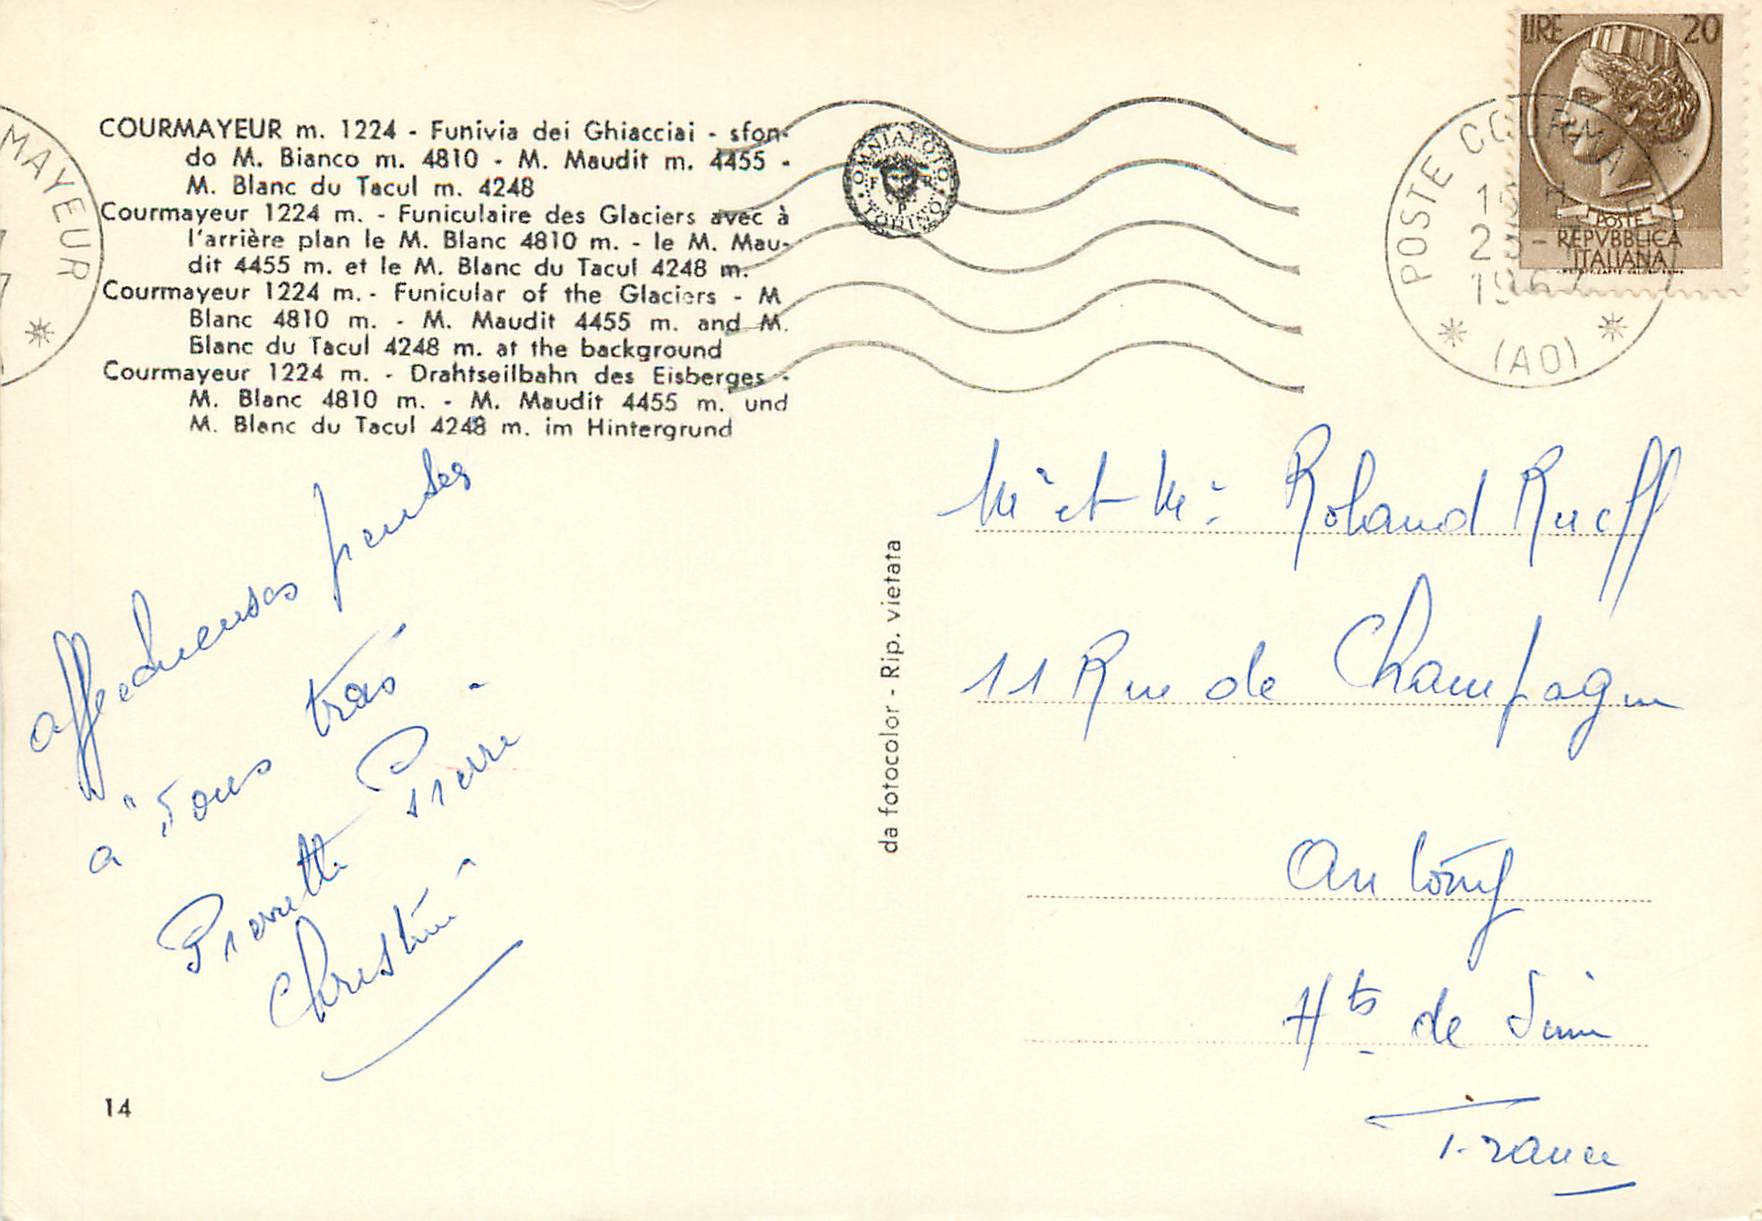 COURMAYEUR m. 1224 - Funivia dei Ghiacciai - sfon-
do M. Bianco m. 4810 - M. Maudit m. 4455 -
M. Blanc du Tacul m. 4248
Courmayeur 1224 m. - Funiculaire des Glaciers avec à
l'arrière plan le M. Blanc 4810 m. - le M. Mau-
dit 4455 m. et le M. Blanc du Tacul 4248 m.
Courmayeur 1224 m. - Funicular of the Glaciers - M
Blanc 4810 m. - M. Maudit 4455 m. and M.
Blanc du Tacul 4248 m. at the background
Courmayeur 1224 m. - Drahtseilbahn des Eisberges -
M. Blanc 4810 m. - M. Maudit 4455 m. und
M. Blanc du Tacul 4248 m. im Hintergrund
MAYEUR
OMNIAFOTO
TORINO
LIRE 20
POSTE
REPVBBLICA
ITALIANA
POSTE COURMA
(AO)
affectueuses pensées
a "Tous trois"
Pierrette Pierre
Christine
14
da fotocolor - Rip. vietata
Mr et Me Roland Rueff
11 Rue de Champagne
Antony
Hts de Seine
France